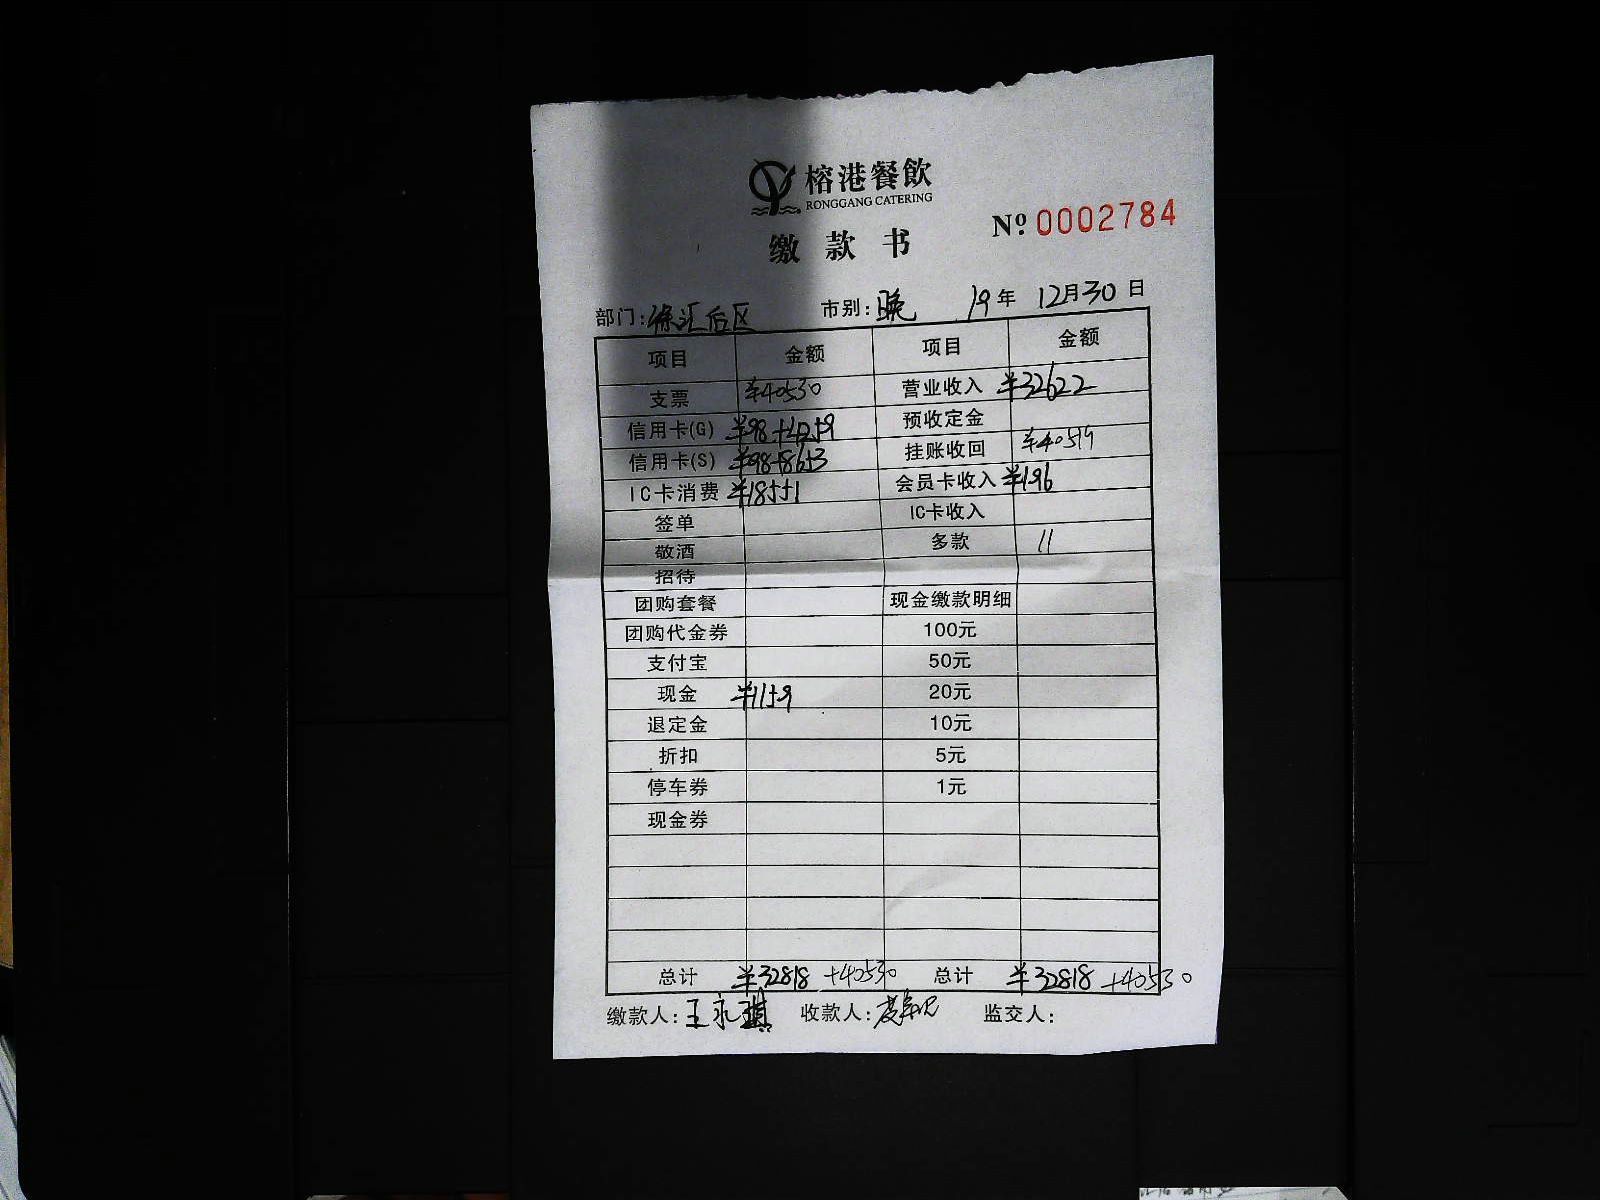 榕港餐飲
RONGGANG CATERING
缴款书
№ 0002784
部门:徐汇后区 市别:晚 19年 12月30日
项目 金额 项目 金额
支票 ¥40530 营业收入 ¥32622
信用卡(G) ¥98+4259 预收定金
信用卡(S) ¥98+8653 挂账收回 ¥40519
IC卡消费 ¥18551 会员卡收入 ¥196
签单 IC卡收入
敬酒 多款 11
招待
团购套餐 现金缴款明细
团购代金券 100元
支付宝 50元
现金 ¥1159 20元
退定金 10元
折扣 5元
停车券 1元
现金券
总计 ¥32818 +40530 总计 ¥32818 +40530
缴款人:王永琪 收款人: 监交人: